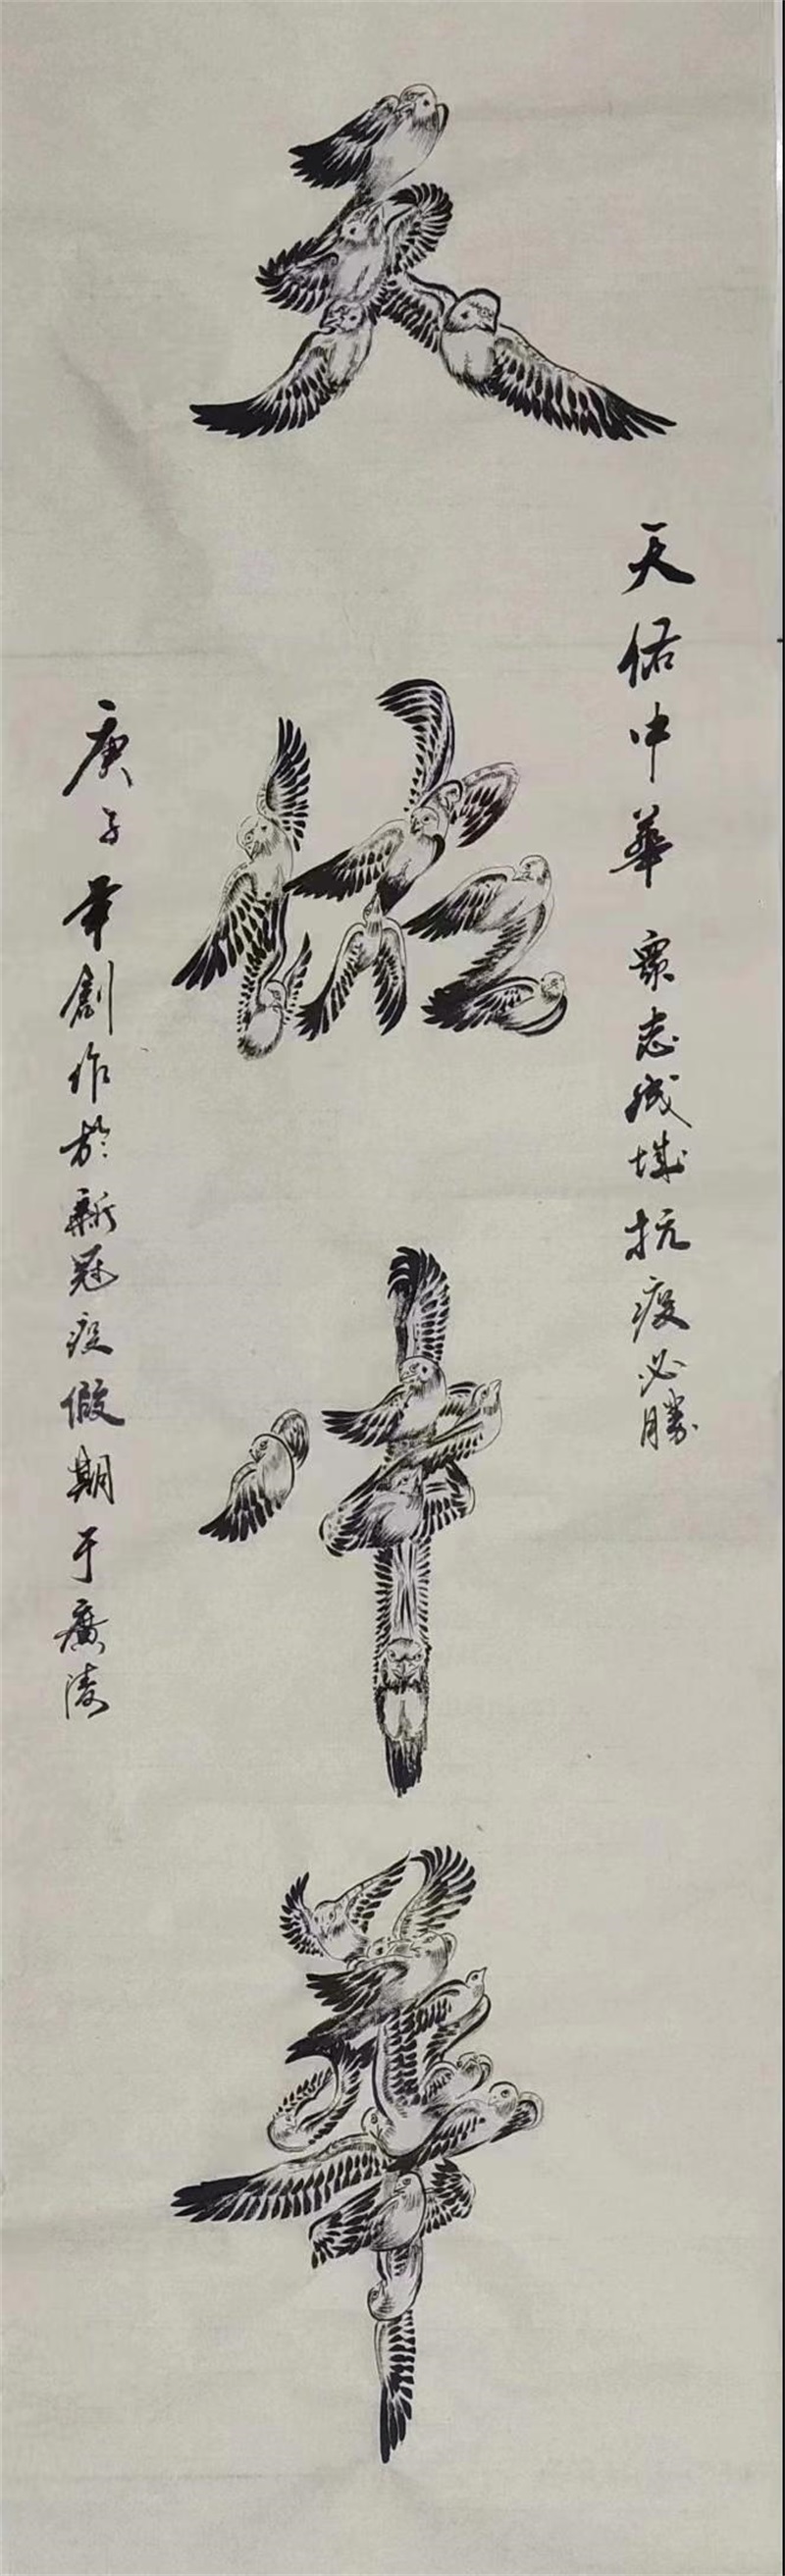 天佑中華
天佑中華 衆志成城抗疫必勝
庚子年創作於新冠疫假期于廣陵